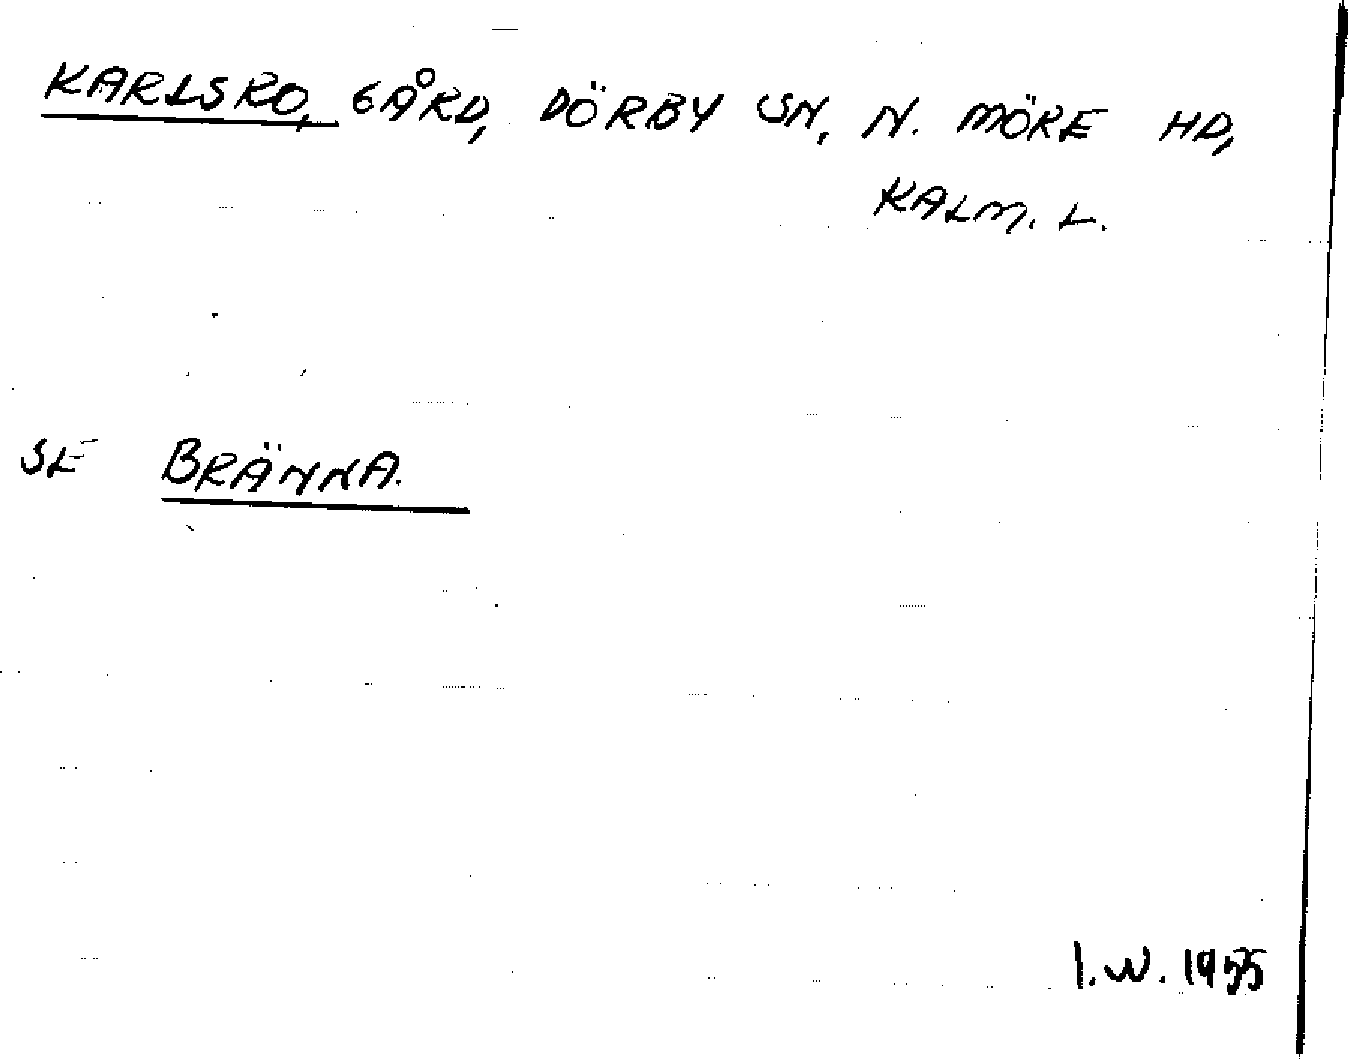 KARLSRO, GÅRD, DÖRBY SN, N. MÖRE HD,
KALM. L.
SE BRÄNNA.
I.W. 1955